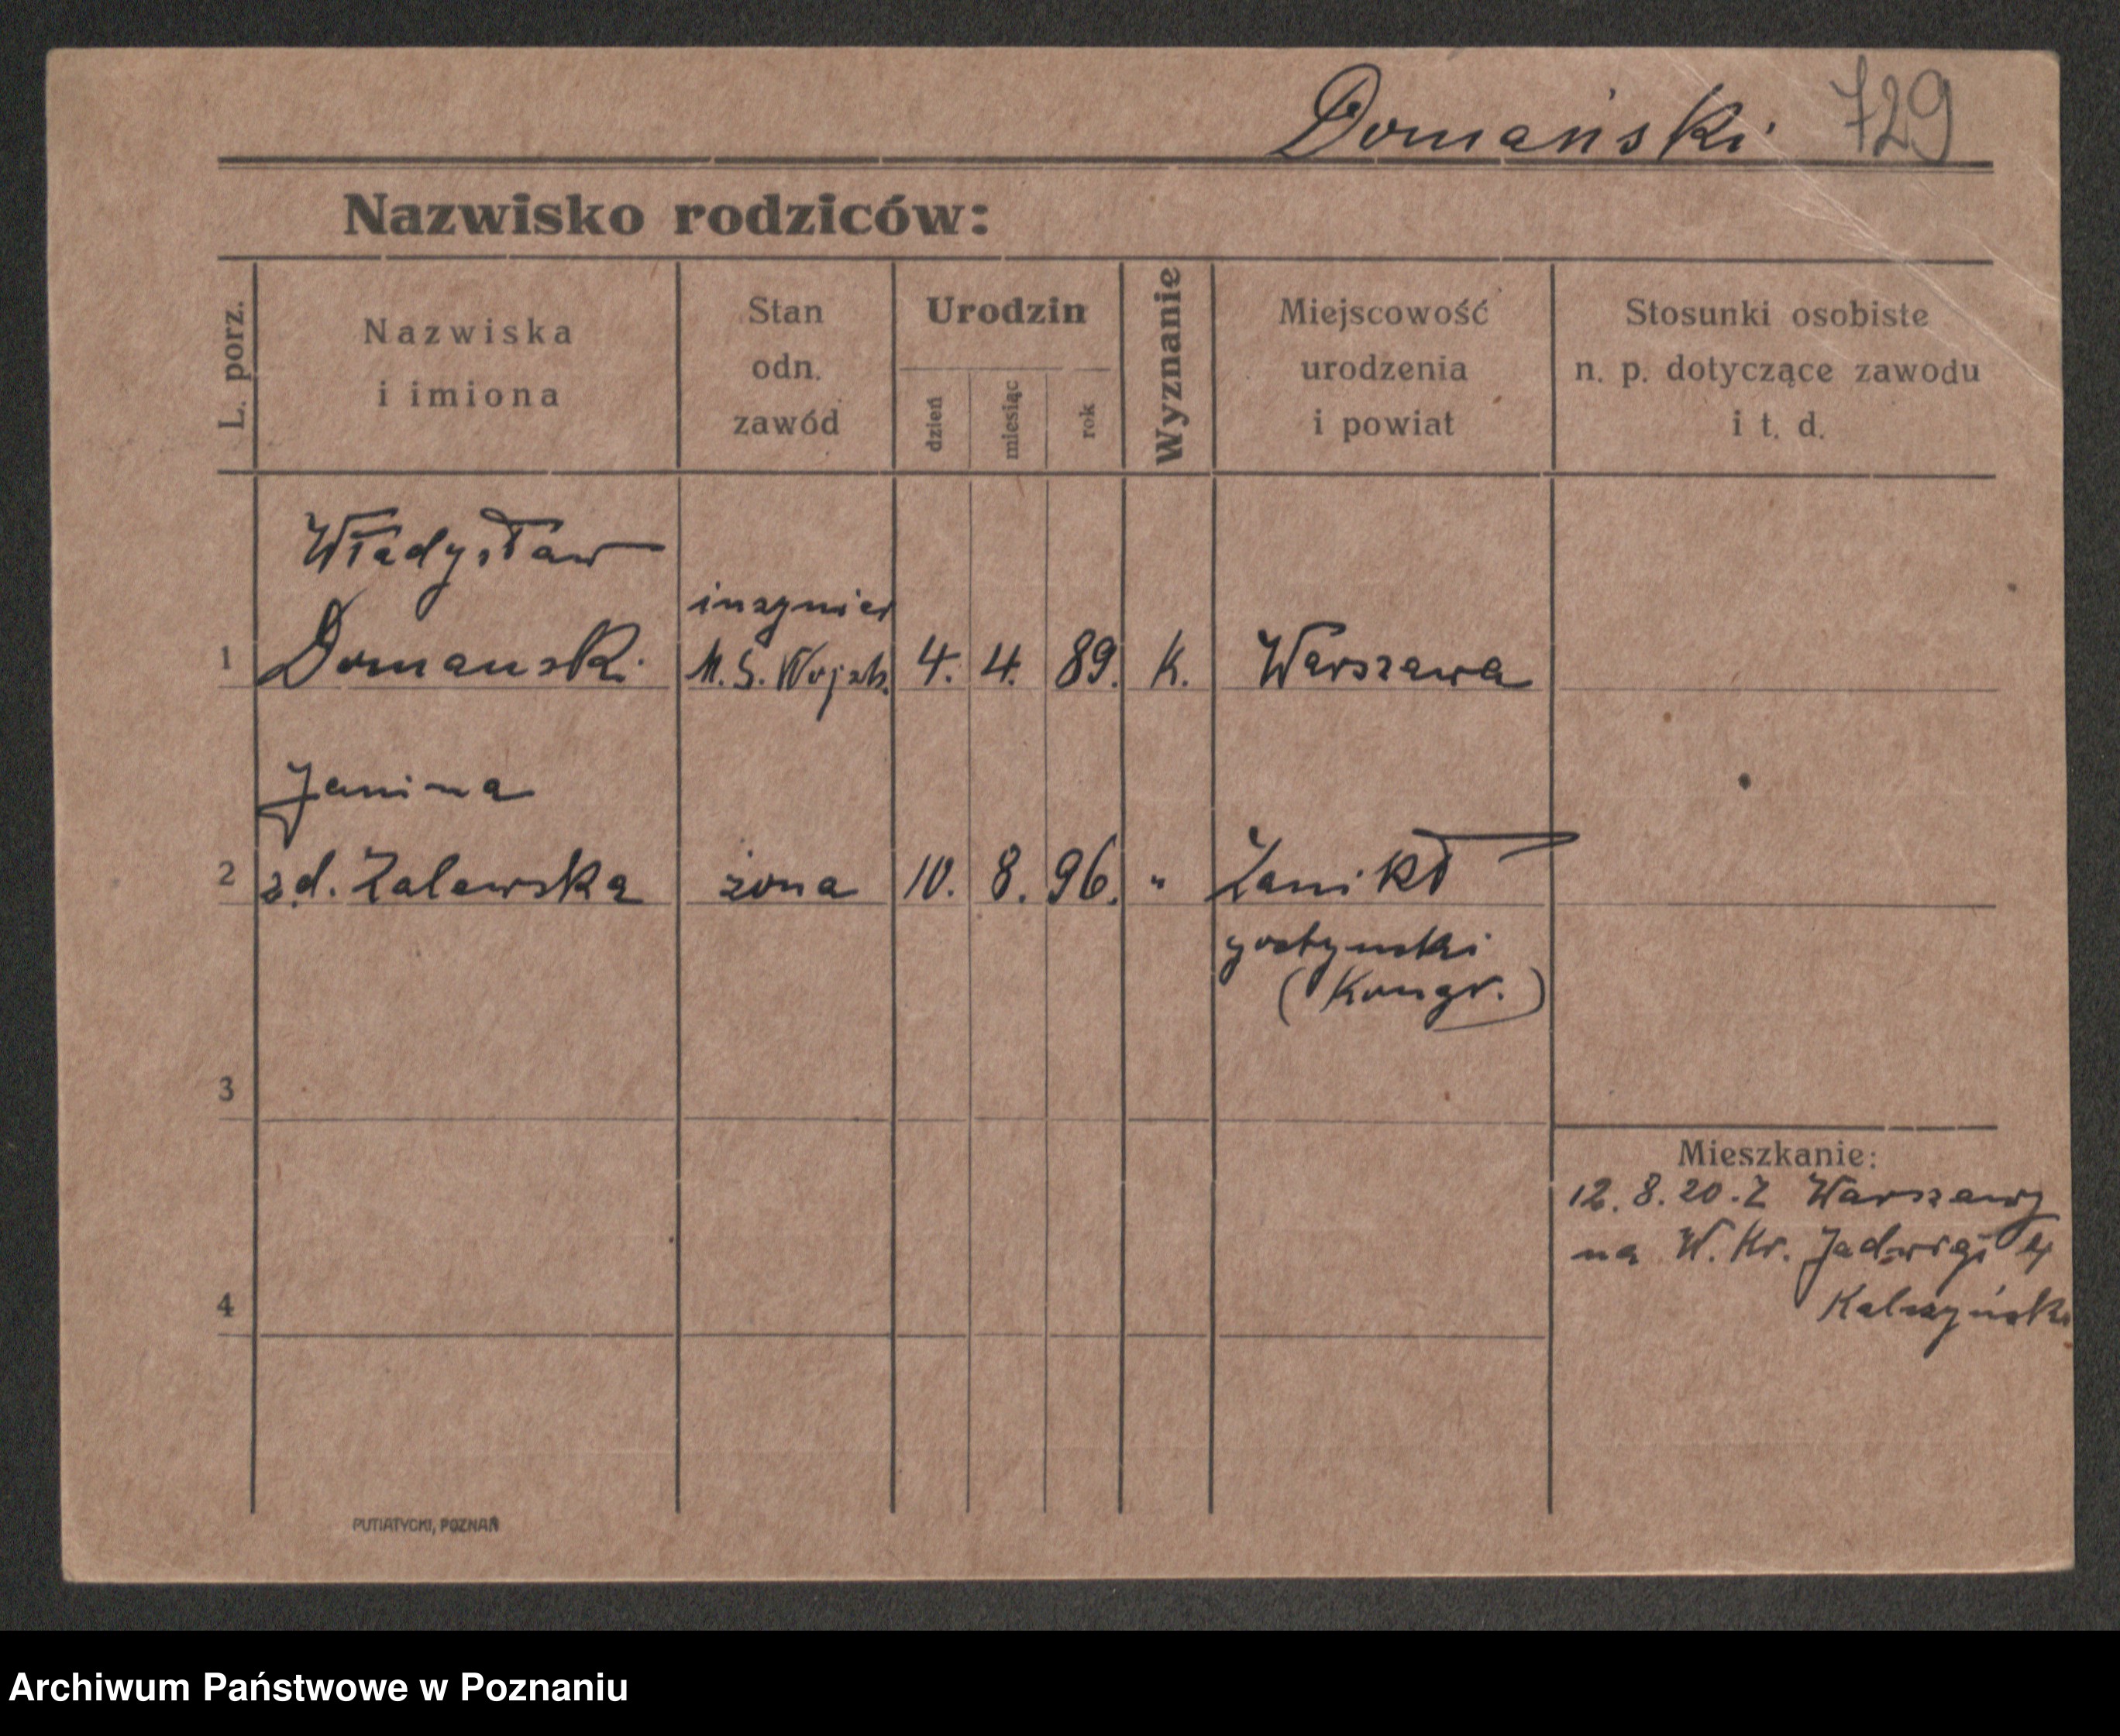 Domański 729
Nazwisko rodziców:
L. porz.
Nazwiska
i imiona
Stan
odn.
zawód
Urodzin
dzień
miesiąc
rok
Wyznanie
Miejscowość
urodzenia
i powiat
Stosunki osobiste
n. p. dotyczące zawodu
i t. d.
Władysław
inzynier
1 Domanski M. S. Wojsk. 4. 4. 89. K. Warszawa
Janina
2 zd. Zalewska żona 10. 8. 96. "
gostynski
(Kongr.)
3
Mieszkanie:
12. 8. 20. Z Warszawy
na W. Kr. Jadwigi
4
PUTIATYCKI, POZNAŃ
Archiwum Państwowe w Poznaniu